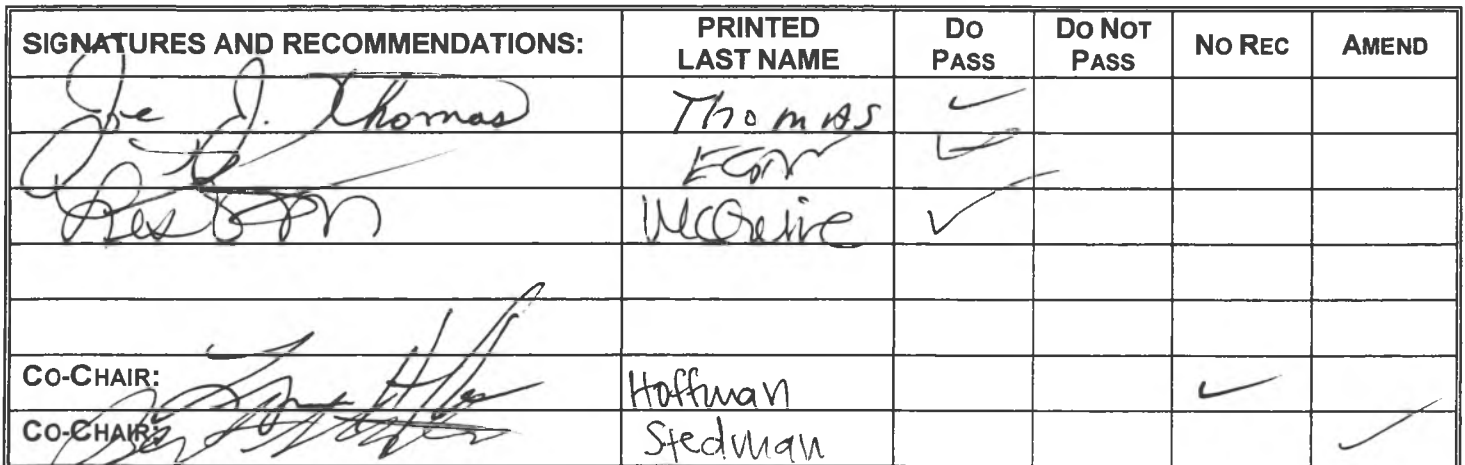 SIGNATURES AND RECOMMENDATIONS: PRINTED LAST NAME DO PASS DO NOT PASS NO REC AMEND
Joe J. Thomas Thomas ✓
Egan ✓
McGuire ✓
CO-CHAIR: Hoffman ✓
CO-CHAIR: Stedman ✓